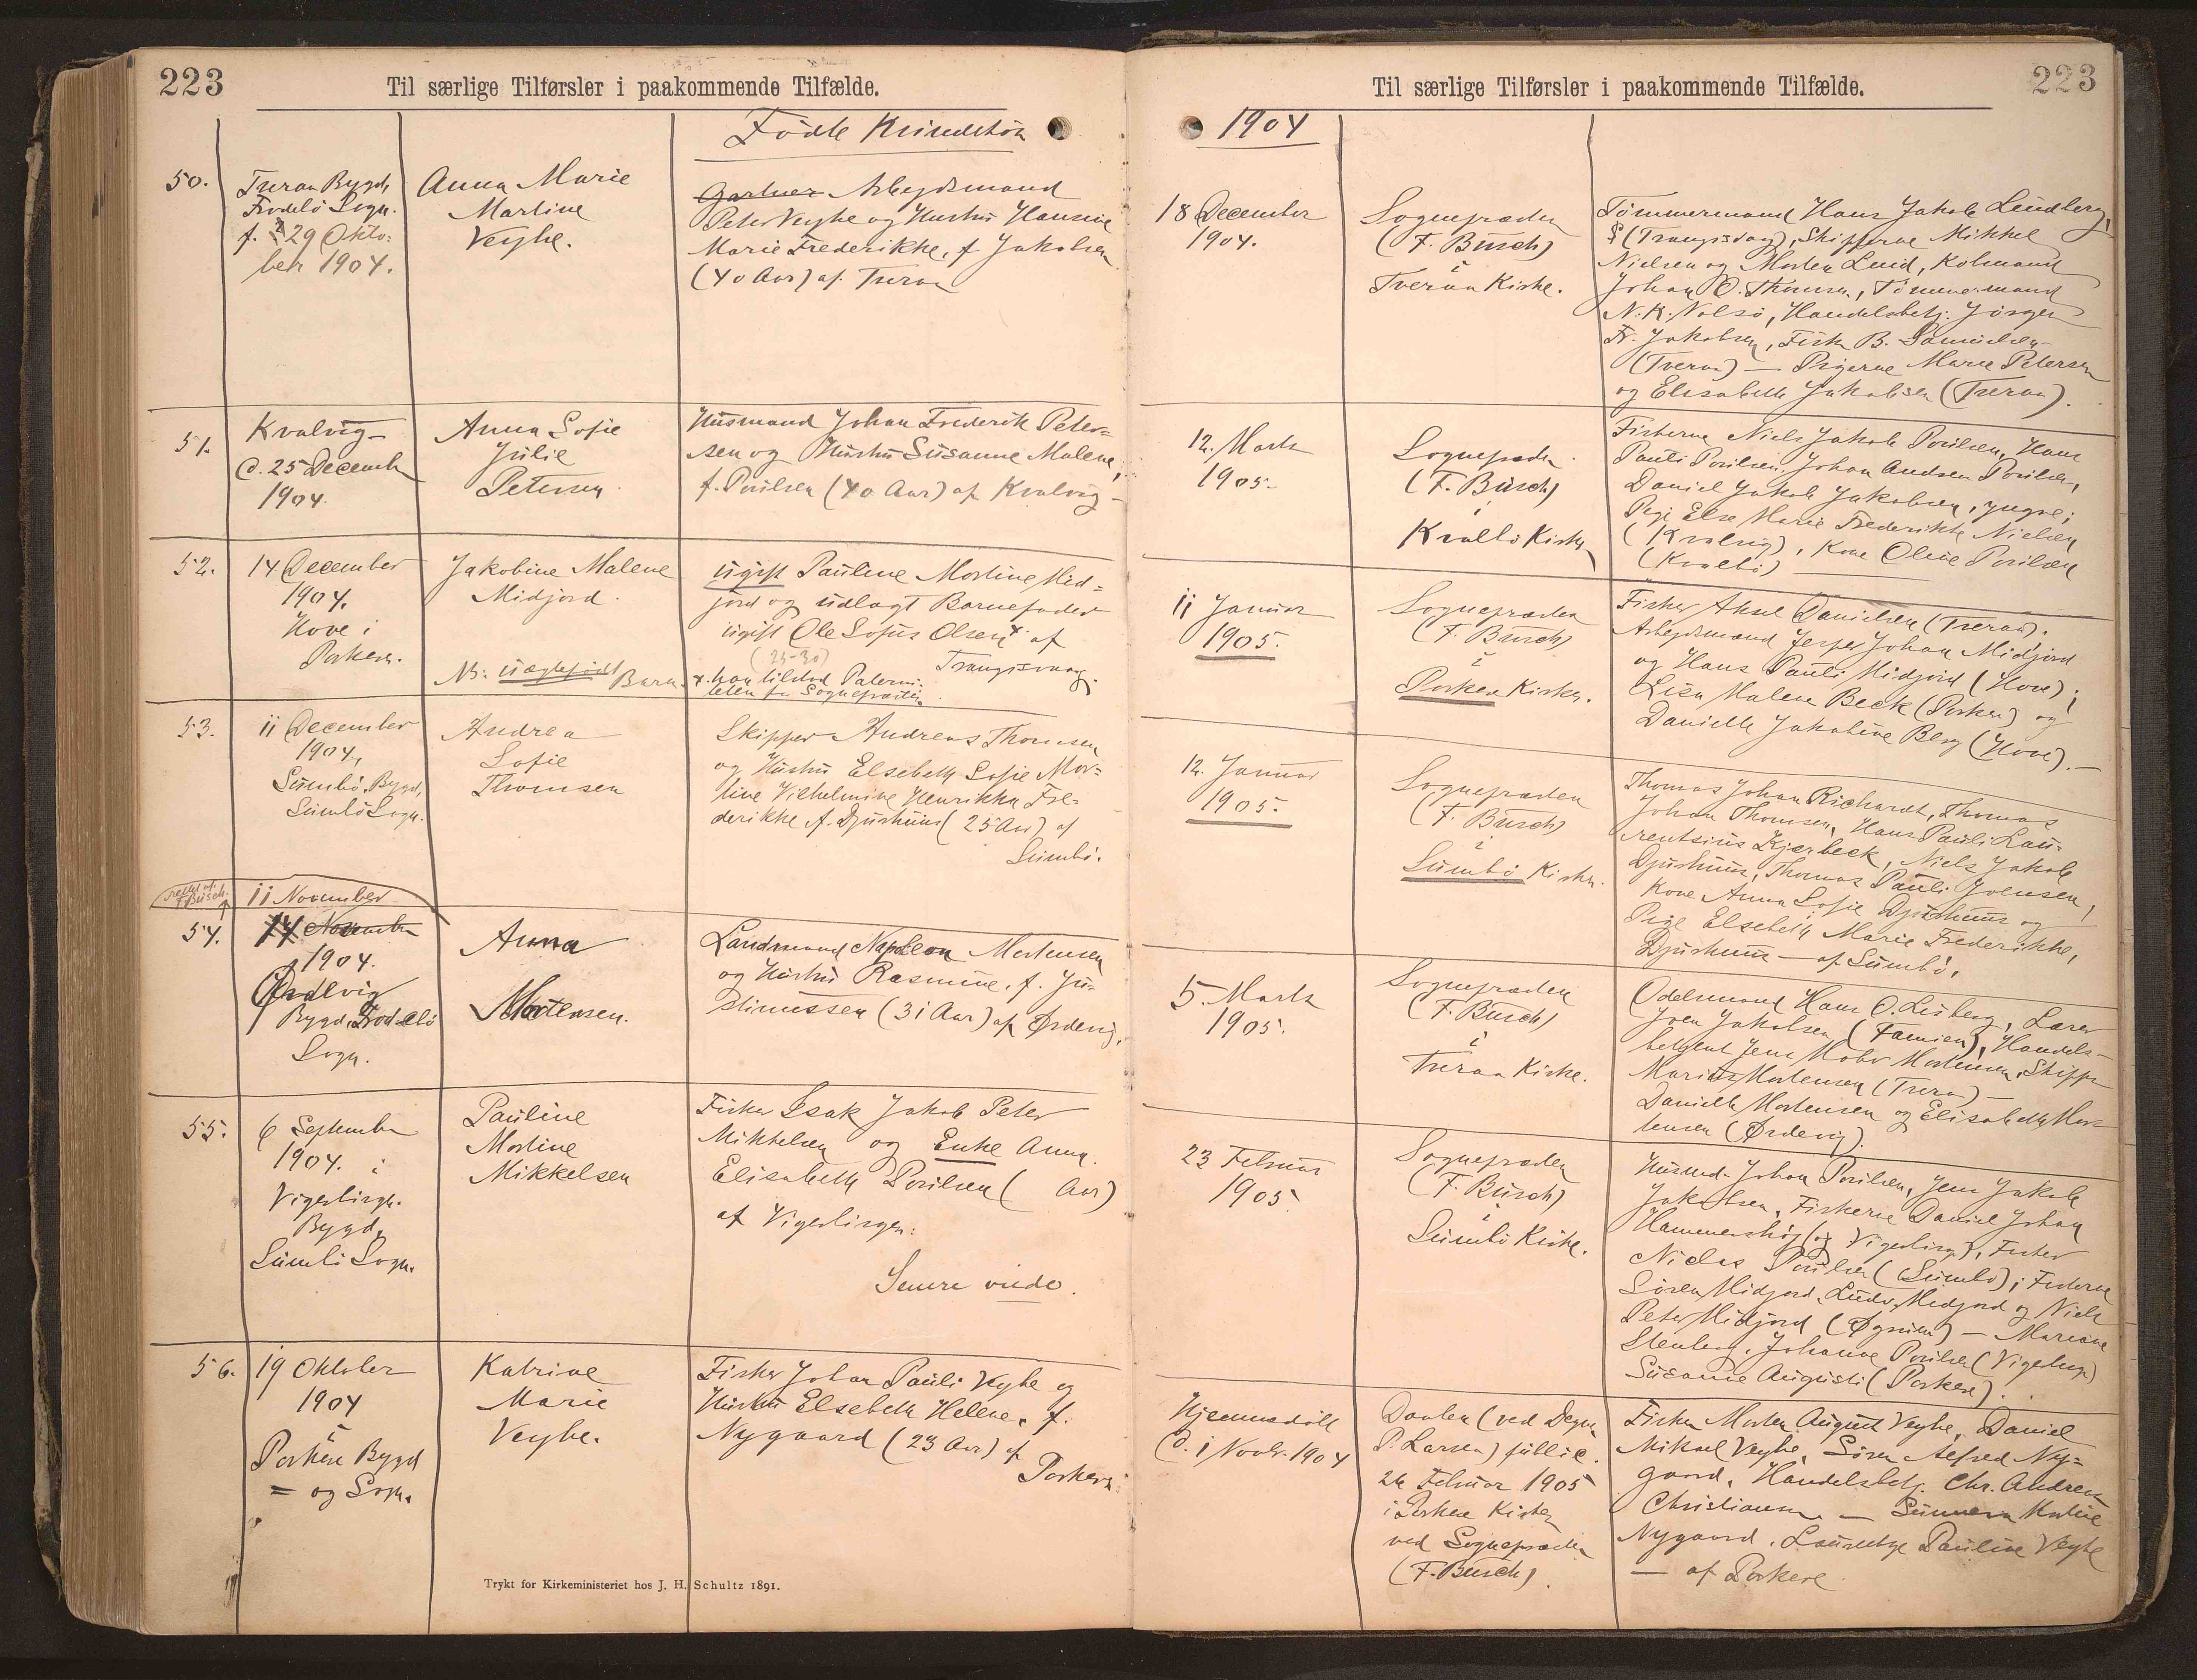 223
Til særlige Tilførsler i paakommende Tilfælde.
Födte Kvindekön
50.
Tveraa Bygd,
Frodebö Sogn.
f. 29 Okto-
ber 1904.
Anna Marie
Martine
Veyhe.
Gartner Arbejdsmand
Peter Veyhe og Hustru Hansine
Marie Frederikke, f. Jakobsen
(40 Aar) af Tveraa
51.
Kvalvig
d. 25 December
1904.
Anna Sofie
Julie
Petersen
Husmand Johan Frederik Peter-
sen og Hustru Susanne Malene,
f. Poulsen (40 Aar) af Kvalvig
52.
14 December
1904.
Hove i
Porkere.
Jakobine Malene
Midjord.
NB: uægtefødt Barn.
ugift Pauline Mortine Mid-
jord og udlagt Barnefader
ugift Ole Sofus Olsen x af
(25-30)
Trangisvaag.
x. han tilstod Paterni-
teten for Sognepræsten.
53.
11 December
1904,
Sumbö Bygd,
Sumbö Sogn.
Andrea
Sofie
Thomsen
Skipper Andreas Thomsen
og Hustru Elsebeth Sofie Mor-
tine Vilhelmine Henrikke Fre-
derikke f. Djurhuus (25 Aar) af
Sumbö.
rettet af
F Busch.
11 November
54.
14 November
1904.
Ørdevig
Bygd, Frodebö
Sogn.
Anna
Mortensen.
Landmand Napoleon Mortensen
og Hustru Rasmine, f. Ju-
stinussen (31 Aar) af Ørdevig.
55.
6 September
1904. i
Vigerbirge
Bygd,
Sumbö Sogn.
Pauline
Mortine
Mikkelsen
Fisker Isak Jakob Peter
Mikkelsen og Enke Anna
Elisabeth Poulsen ( Aar)
af Vigerbirge.
Senere viede.
56.
19 Oktober
1904
i
Porkere Bygd
= og Sogn.
Katrine
Marie
Veyhe.
Fisker Johan Pauli Veyhe og
Hustru Elsebeth Helene, f.
Nygaard (23 Aar) af
Porkere.
Trykt for Kirkeministeriet hos J. H. Schultz 1891.
Til særlige Tilførsler i paakommende Tilfælde.
223
1904
18 December
1904.
Sognepræsten
(F. Busch)
i
Tveraa Kirke.
Tömmermand Hans Jakob Lindberg,
(Trangisvaag), Skipperne Mikkel
Nielsen og Morten Lund, Kolmand
Johan O. Thomsen, Tömmermand
N. K. Nolsö, Handelsbetj. Jörgen
Fr. Jakobsen, Fisker B. Samuelsen
(Tveraa) — Pigerne Marie Petersen
og Elisabeth Jakobsen (Tveraa).
12. Marts
1905
Sognepræsten
(F. Busch)
i
Kvalbö Kirke
Fiskerne Niels Jakob Poulsen, Hans
Pauli Poulsen, Johan Andreas Poulsen,
Daniel Jakob Jakobsen, yngre;
Pige Else Marie Frederikke Nielsen
(Kvalvig), Kone Oline Poulsen
(Kvalbö)
11 Januar
1905.
Sognepræsten
(F. Busch)
i
Porkere Kirke.
Fisker Aksel Danielsen (Tveraa).
Arbejdsmand Jesper Johan Midjord
og Hans Pauli Midjord (Hove);
Lisa Malene Beck (Porkere) og
Danielle Jakobine Berg (Hove).—
12. Januar
1905.
Sognepræsten
(F. Busch)
i
Sumbö Kirke.
Thomas Johan Richardt, Thomas
Johan Thomsen, Hans Pauli Lau-
rentsius Kjærbeck, Niels Jakob
Djurhuus, Thomas Pauli Joensen,
Kone Anna Sofie Djurhuus og
Pige Elsebeth Marie Frederikke
Djurhuus — af Sumbö.
5. Marts
1905.
Sognepræsten
(F. Busch)
i
Tveraa Kirke.
Odelsmand Hans O. Lisberg, Lærer
Joen Jakobsen (Famien), Handels-
betjent Jens Mohr Mortensen, Skipper
Marius Mortensen (Tveraa) —
Danielle Mortensen og Elisabeth Mor-
tensen (Ørdevig).
23 Februar
1905.
Sognepræsten
(F. Busch)
i
Sumbö Kirke.
Husmd. Johan Poulsen, Jens Jakob
Jakobsen, Fiskerne Daniel Johan
Hammershøj (og Vigerbirge), Fisker
Niclas Poulsen (Sumbö); Fiskerne
Sören Midjord, Ludv. Midjord og Niels
Peter Midjord — Mariane
Stenberg, Johanne Poulsen (Vigerbirge)
Susanne Augusti (Porkere).
Hjemmedöbt
d. 1 Novbr. 1904
Daaben (ved Degn
P. Larsen) publice.
26 Februar 1905
i Porkere Kirke
ved Sognepræsten
(F. Busch).
Fisker Morten August Veyhe, Daniel
Mikael Veyhe, Sören Alfred Ny-
gaard, Handelsbetj. Chr. Andreas
Christiansen — Sunneva Martine
Nygaard, Pauline Veyhe
— af Porkere